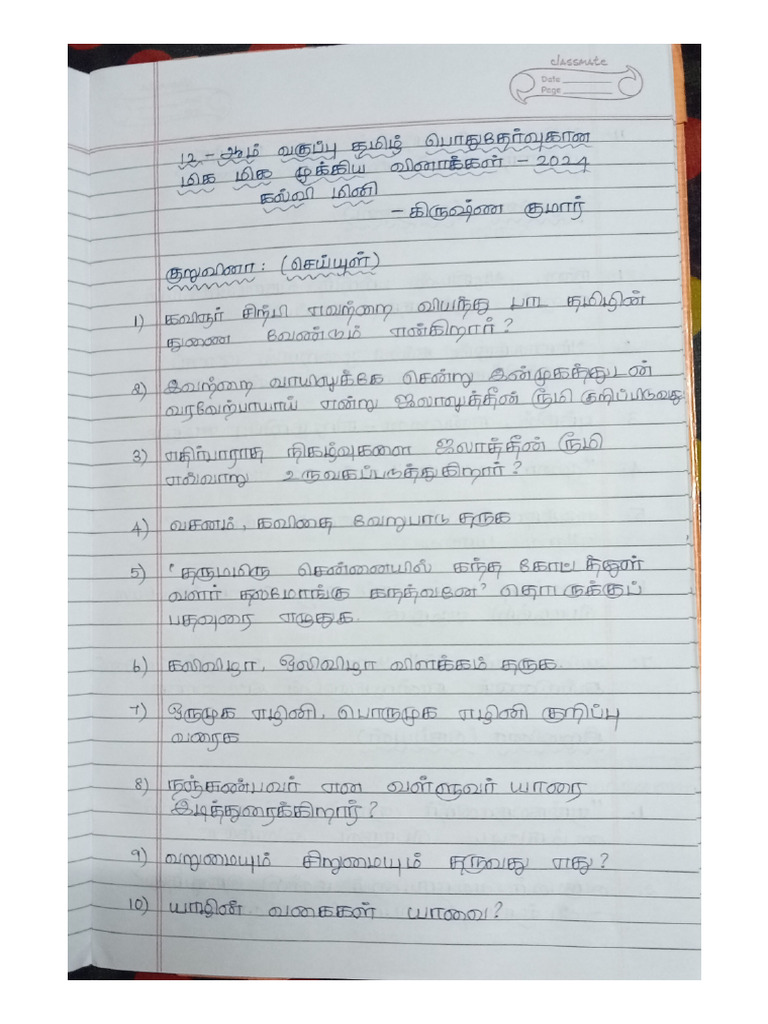 classmate
Date
Page
12 - ஆம் வகுப்பு தமிழ் பொதுதேர்வுகான
மிக மிக முக்கிய வினாக்கள் - 2024
கல்வி மினி
- கிருஷ்ண குமார்
குறுவினா : (செய்யுள்)
1) கவிஞர் சிற்பி எவற்றை வியந்து பாட தமிழின்
துணை வேண்டும் என்கிறார்?
2) இவற்றை வாயிலுக்கே சென்று இன்முகத்துடன்
வரவேற்பாயாய் என்று ஜலாலுத்தீன் ரூமி குறிப்பிடுவது
3) எதிர்பாராத நிகழ்வுகளை ஜலாத்தீன் ரூமி
எவ்வாறு உருவகப்படுத்துகிறார்?
4) வசனம், கவிதை வேறுபாடு தருக
5) 'தருமமிகு சென்னையில் கந்த கோட்டத்துள்
வளர் தலமோங்கு கந்தவேனே' தொடருக்குப்
பதவுரை எழுதுக
6) கலிவிழா, ஒலிவிழா விளக்கம் தருக
7) ஒருமுக எழினி, பொருமுக எழினி குறிப்பு
வரைக
8) நஞ்சுண்பவர் என வள்ளுவர் யாரை
இடித்துரைக்கிறார்?
9) வறுமையும் சிறுமையும் தருவது எது?
10) யாழின் வகைகள் யாவை?